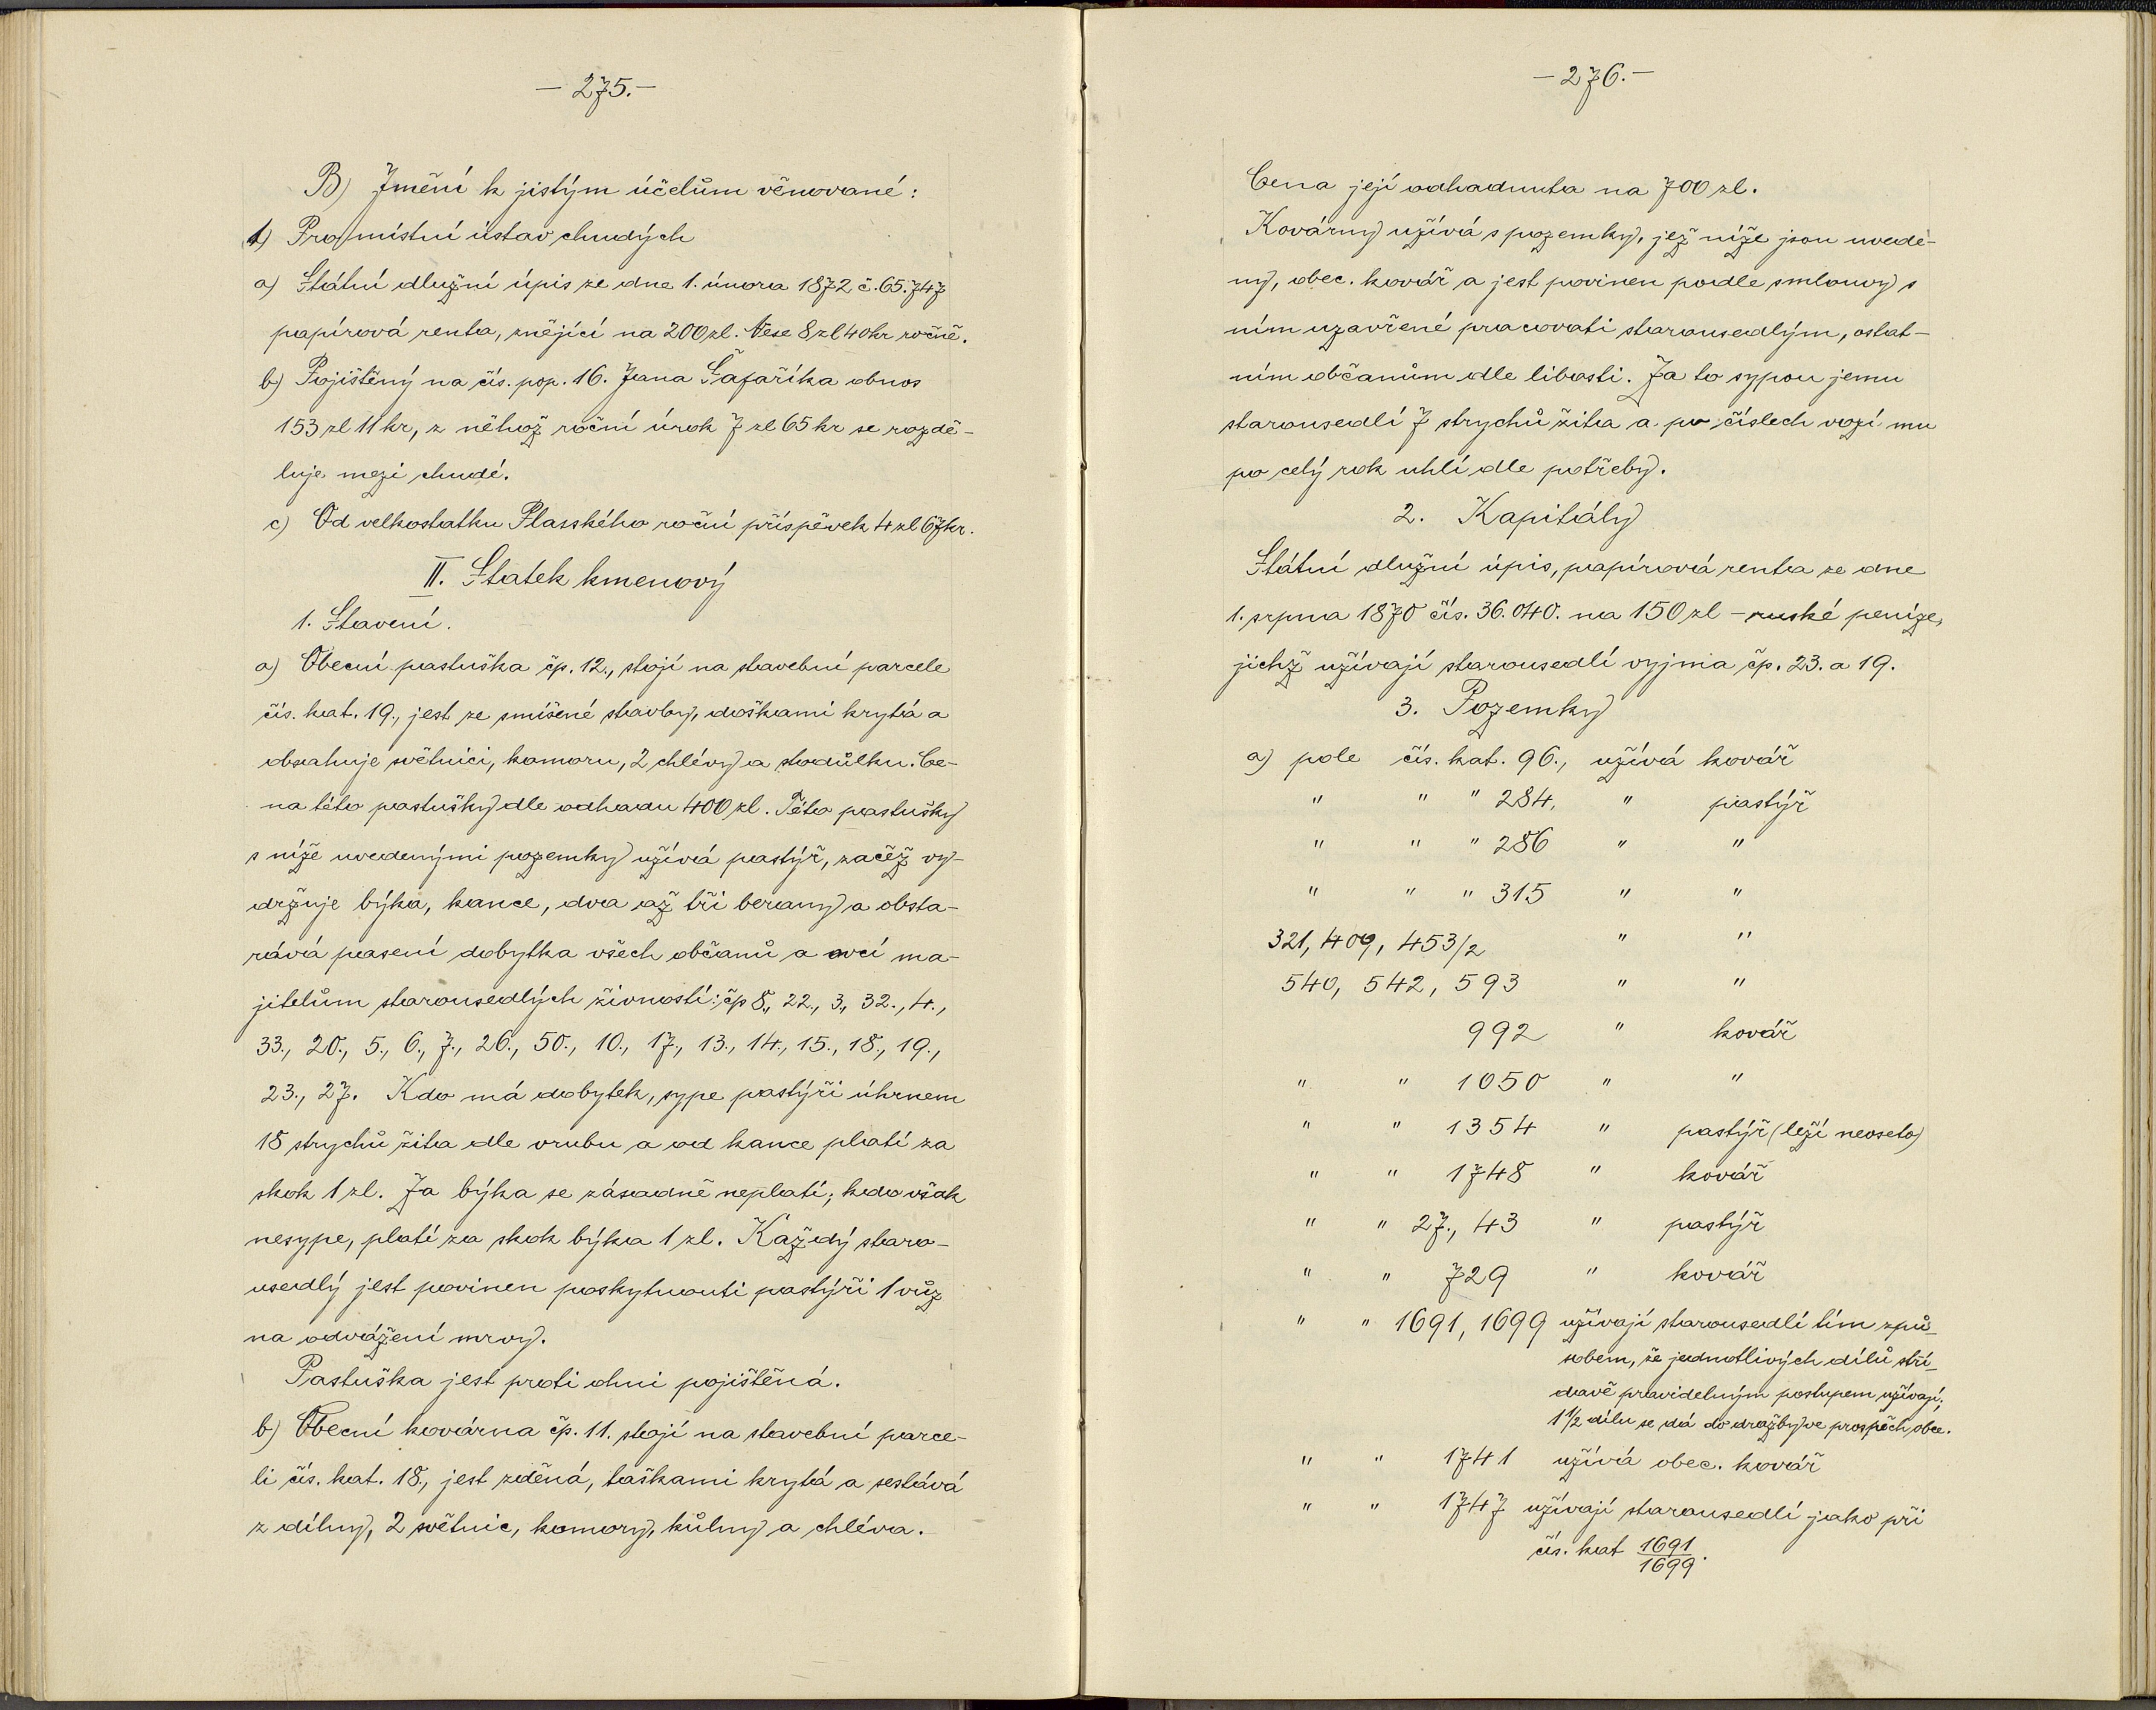 — 275. —
B) Jmění k jistým účelům věnované:
1) Pro místní ústav chudých
a) Státní dlužní úpis ze dne 1. února 1872 č. 65.747
papírová renta, znějící na 200 zl. Nese 8 zl 40 kr ročně.
b) Pojištěný na čís. pop. 16. Jana Šafaříka obnos
153 zl 11 kr, z něhož roční úrok 7 zl 65 kr se rozdě-
luje mezi chudé.
c) Od velkostatku Plasského roční příspěvek 4 zl 67 kr.
II. Statek kmenový
1. Stavení.
a) Obecní pastuška čp. 12., stojí na stavební parcele
čís. kat. 19., jest ze smíšené stavby, doškami krytá a
obsahuje světnici, komoru, 2 chlévy a stodůlku. Ce-
na této pastušky dle odhadu 400 zl. Této pastušky
s níže uvedenými pozemky užívá pastýř, začež vy-
držuje býka, kance, dva až tři berany a obsta-
rává pasení dobytka všech občanů a ovcí ma-
jitelům starousedlých živností: čp 8., 22., 3., 32., 4.,
33., 20., 5., 6., 7., 26., 50., 10., 17., 13., 14., 15., 18., 19.,
23., 27. Kdo má dobytek, sype pastýři úhrnem
18 strychů žita dle vrubu a od kance platí za
skok 1 zl. Za býka se zásadně neplatí; kdo však
nesype, platí za skok býka 1 zl. Každý staro-
usedlý jest povinen poskytnouti pastýři 1 vůz
na odvážení mrvy.
Pastuška jest proti ohni pojištěná.
b) Obecní kovárna čp. 11. stojí na stavební parce-
li čís. kat. 18., jest zděná, taškami krytá a sestává
z dílny, 2 světnic, komory, kůlny a chléva.
— 276. —
Cena její odhadnuta na 700 zl.
Kovárny užívá s pozemky, jež níže jsou uvede-
ny, obec. kovář a jest povinen podle smlouvy s
ním uzavřené pracovati starousedlým, ostat-
ním občanům dle libosti. Za to sypou jemu
starousedlí 7 strychů žita a po číslech vozí mu
po celý rok uhlí dle potřeby.
2. Kapitály
Státní dlužní úpis, papírová renta ze dne
1. srpna 1870 čís. 36.040. na 150 zl – ruské peníze,
jichž užívají starousedlí vyjma čp. 23. a 19.
3. Pozemky
a) pole čís. kat. 96., užívá kovář
" " " 284, " pastýř
" " " 286 " "
" " " 315 " "
321, 409, 453/2 " "
540, 542, 593 " "
992 " kovář
" " 1050 " "
" " 1354 " pastýř (leží neoseto)
" " 1748 " kovář
" " 27., 43 " pastýř
" " 729 " kovář
" " 1691, 1699 užívají starousedlí tím způ-
sobem, že jednotlivých dílů stří-
davě pravidelným postupem užívají;
1 1/2 dílu se dá do dražby ve prospěch obce.
" " 1741 užívá obec. kovář
" " 1747 užívají starousedlí jako při
čís. kat 1691/1699.